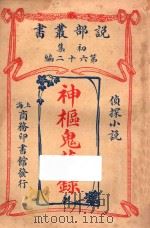 說部叢書
初集
第六十二編
偵探小說
神樞鬼
錄
上海
商務印書館發行